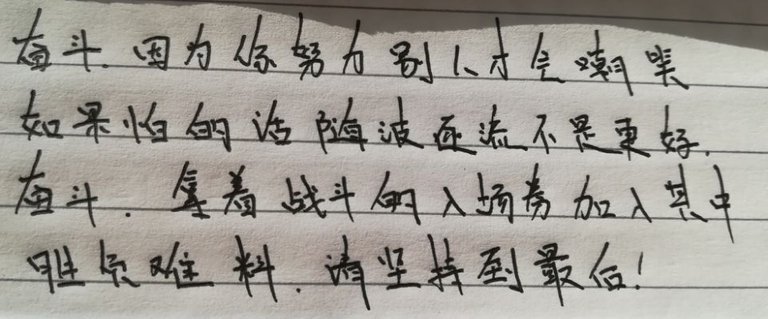 奋斗.因为你努力别人才会嘲笑
如果怕的话随波逐流不是更好.
奋斗.拿着战斗的入场券加入其中
胜负难料.请坚持到最后!